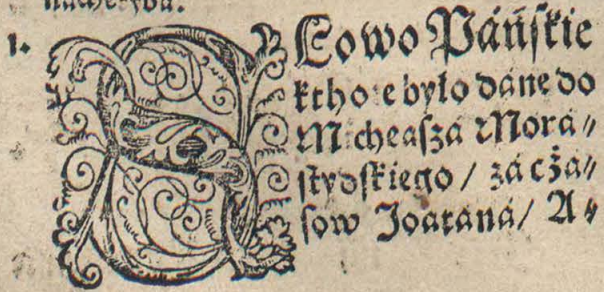 1. SŁowo Páńſkie
kthore było dáne do
Micheaſzá Morá⸗
ſtydſkiego / zá cżá⸗
ſow Joataná/ A⸗